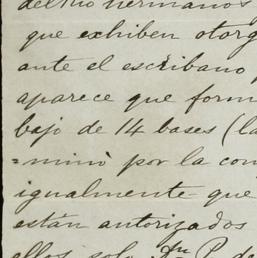 del Rio hermanos
que exhiben otorg
ante el escribano
aparece que form
bajo de 14 bases (la
=minó por la con
igualmente que
están autorizados
ellos solo P. de